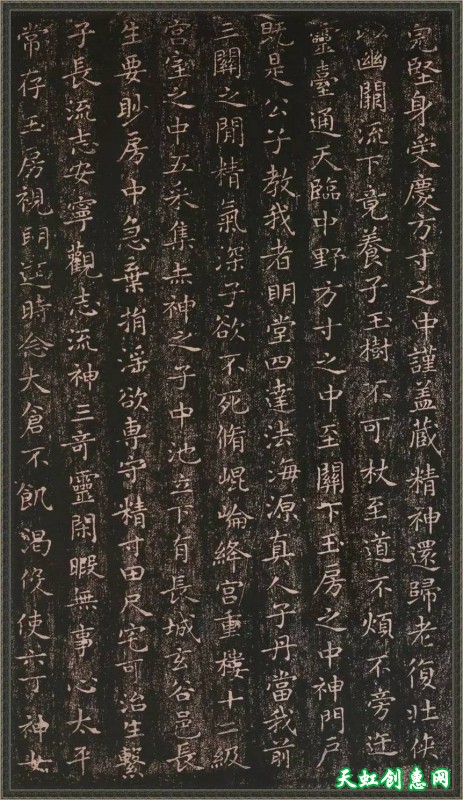 完堅身受慶方寸之中謹盖藏精神還歸老復壯俠
以幽闕流下竟養子玉樹不可杖至道不煩不旁迕
靈臺通天臨中野方寸之中至關下玉房之中神門户
既是公子教我者明堂四達法海源真人子丹當我前
三關之閒精氣深子欲不死脩崐崘絳宮重樓十二級
宮室之中五采集赤神之子中池立下有長城玄谷邑長
生要眇房中急棄捐淫欲專守精寸田尺宅可治生繫
子長流志安寧觀志流神三奇靈閑暇無事心太平
常存玉房視明達時念大倉不飢渴役使六丁神女
天虹创惠网